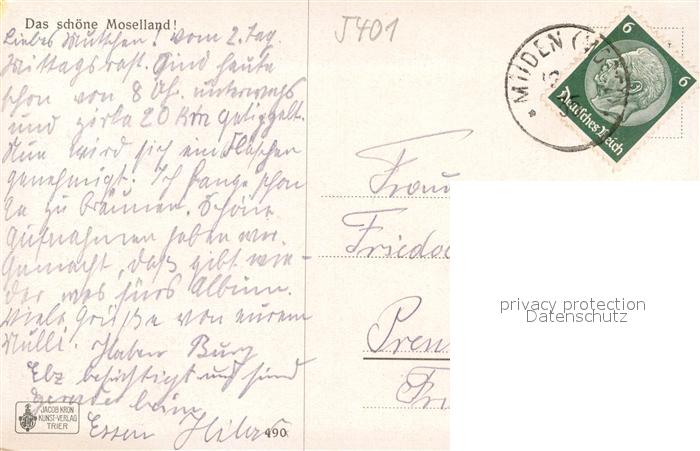 Das schöne Moselland!
J401
Liebes Muttchen! vom 2. Tag.
Mittagsrast. Sind heute
schon von 8 Uh. unterwegs
und zirka 20 km getippelt.
Nun wird sich ein Fläschen
genehmigt. Ich fange schon
an zu bräunen. Schöne
Aufnahmen haben wir
gemacht, daß gibt wie-
der was fürs Album.
Viele Grüße von eurem
Haben Burg
Elz besichtigt und sind
gerade beim
Essen
JACOB KRON
KUNST-VERLAG
TRIER
490
* MÜDEN (MOSEL)
6 6
Deutsches Reich
Frau
Pren
privacy protection
Datenschutz